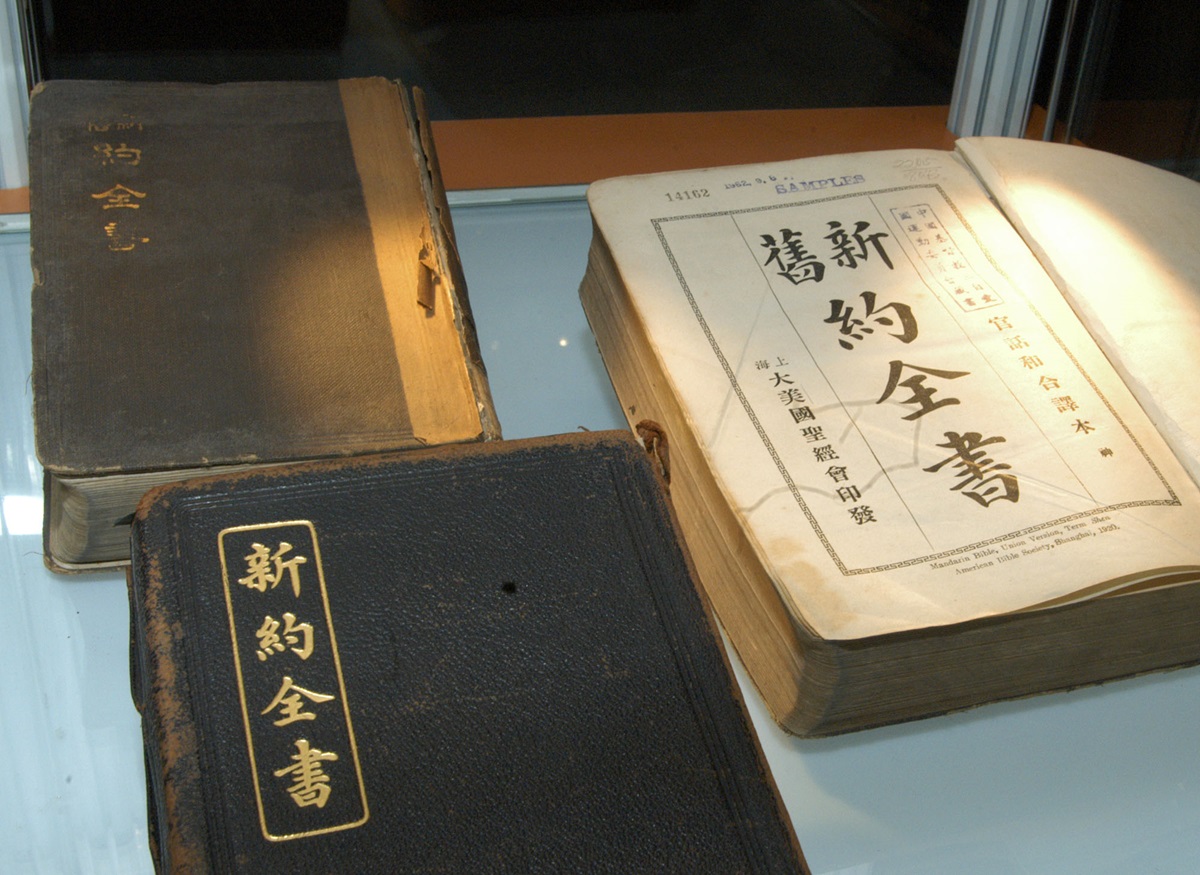 約全書
新約全書
14162
SAMPLES
官話和合譯本 神
新舊約全書
上海大美國聖經會印發
Mandarin Bible, Union Version, Term Shen
American Bible Society, Shanghai, 1920.